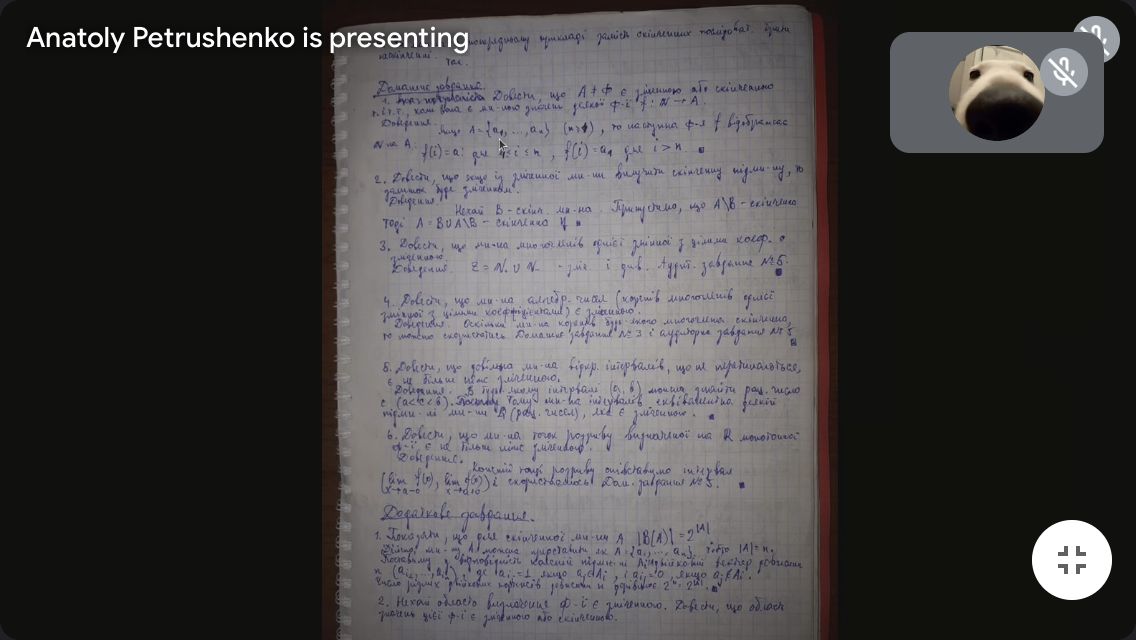 Anatoly Petrushenko is presenting
прикладі замість скінченних
так.
Домашнє завдання.
1. Довести, що A ≠ ∅ є зліченною або скінченною
вона є мн-ною значень деякої ф-ї f: N → A.
Доведення.
Якщо A = {a₁, ..., aₙ}, то наступна ф-я f відображає
N на A:
f(i) = aᵢ для 1 ≤ i ≤ n, f(i) = a₁ для i > n.
2. Довести, що якщо із зліченної мн-ни вилучити скінченну підмн-ну, то
залишок буде зліченним.
Доведення.
Нехай B - скінч. мн-на. Припустимо, що A\B - скінченна
тоді A = B ∪ A\B - скінченна
3. Довести, що мн-на многочленів однієї змінної з цілими коеф. є
зліченною.
Доведення. Z = N ∪ N - зліч і див. Аудит. завдання №5.
4. Довести, що мн-на алгебр. чисел (коренів многочленів однієї
змінної з цілими коефіцієнтами) є зліченною.
Доведення. Оскільки мн-на коренів будь-якого многочлена скінченна,
то можно скористатись Домашнє завдання №3 і аудиторне завдання №5
5. Довести, що довільна мн-на відкр. інтервалів, що не перетинаються,
є не більше ніж зліченною.
Доведення. В будь-якому інтервалі (a, b) можна знайти рац. число
c (a < c < b). Тому мн-на інтервалів еквівалентна деякій
підмн-ні мн-ни Q (рац. чисел), яка є зліченною.
6. Довести, що мн-на точок розриву визначеної на R монотонної
ф-ї є не більше ніж зліченною.
Доведення.
Кожній точці розриву співставимо інтервал
(lim f(x), lim f(x)) і скористаємось Дом. завдання №5.
x→a-0 x→a+0
Додаткове завдання.
1. Показати, що для скінченної мн-ни A |B(A)| = 2^|A|
Дійсно, мн-ну A можна представити як A = {a₁, ..., aₙ}, тобто |A| = n.
Поставимо у відповідність кожній підмн-ні Aᵢ вектор довжини
n, де =1 якщо, і =0, якщо
Число різних довжини n дорівнює 2ⁿ
2. Нехай область визначення ф-ї є зліченною. Довести, що область
значень цієї ф-ї є зліченною або скінченною.